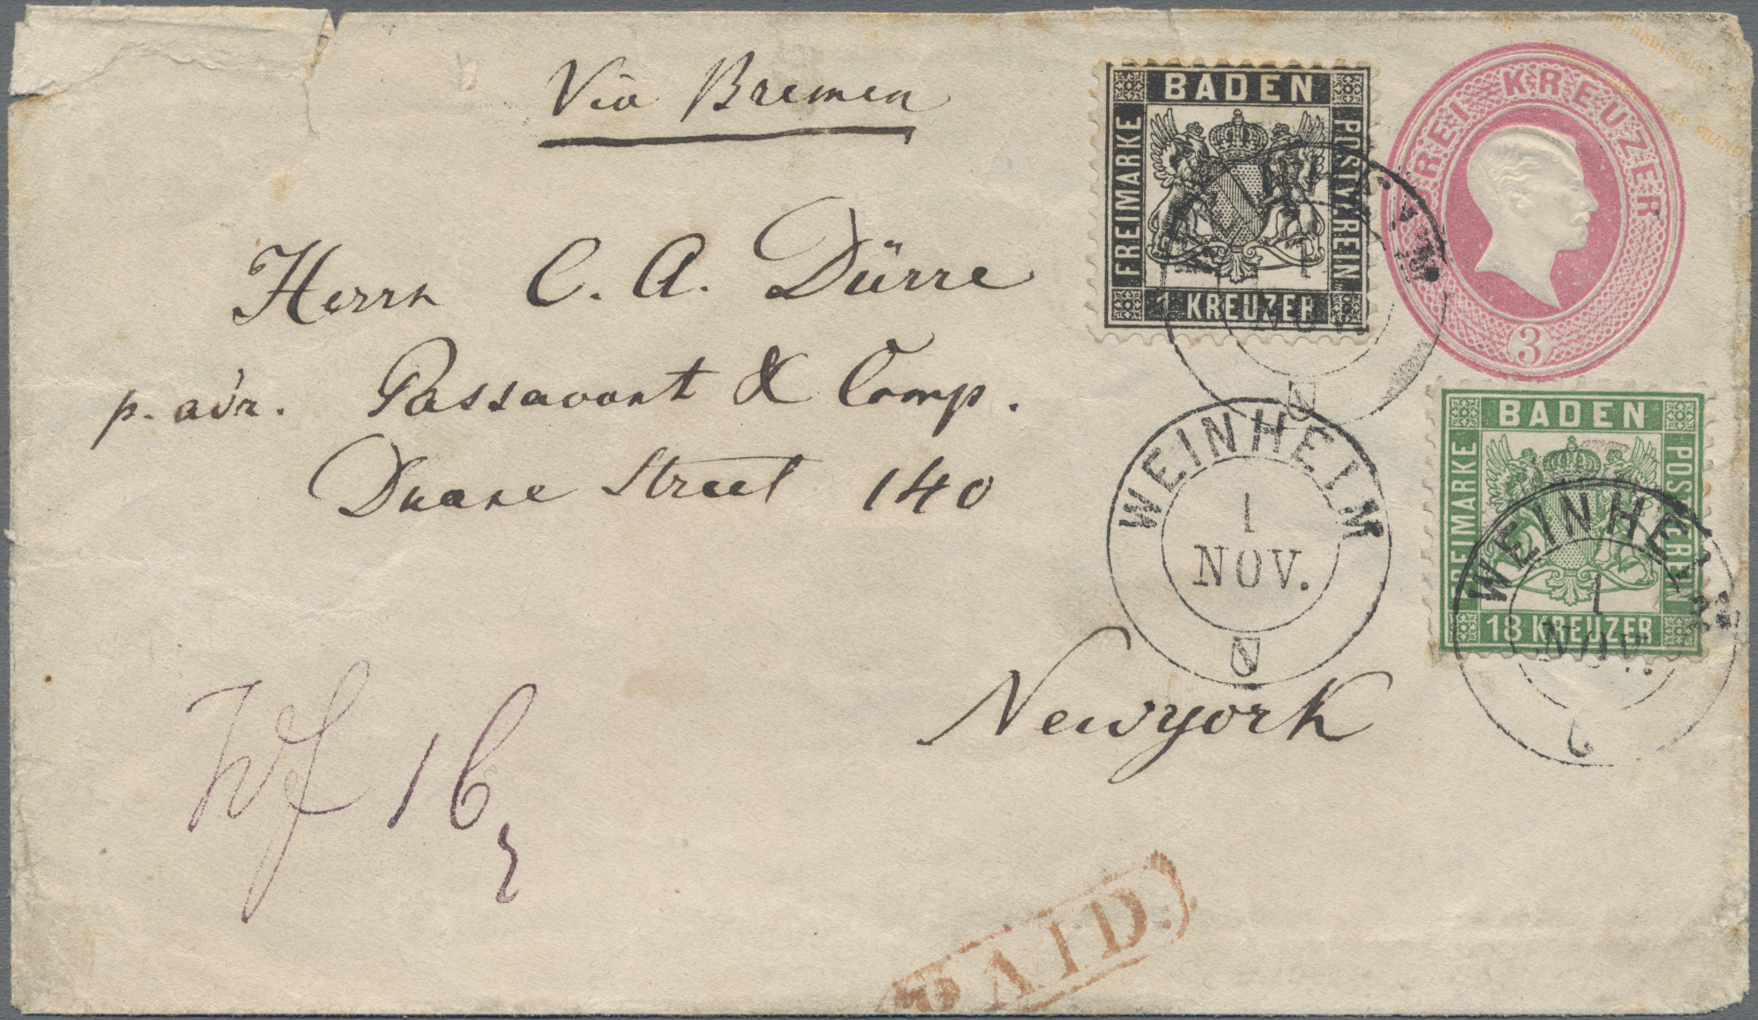 Via Bremen
BADEN
FREIMARKE
POSTVEREIN
1 KREUZER
DREI KREUZER
3
Herrn C. A. Dürre
p. adr. Passavant & Comp.
Duane Street 140
Newyork
WEINHEIM
1
NOV.
BADEN
FREIMARKE
POSTVEREIN
18 KREUZER
WEINHEIM
1
NOV.
1
NOV.
Wf 16
PAID.